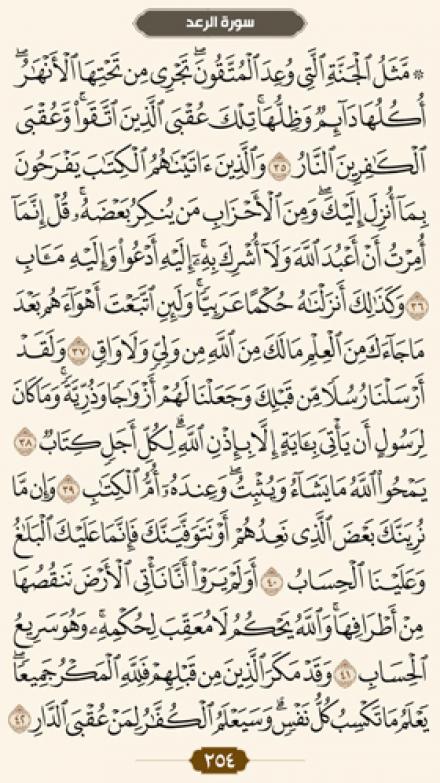 سورة الرعد
۞ مَّثَلُ ٱلْجَنَّةِ ٱلَّتِى وُعِدَ ٱلْمُتَّقُونَ ۖ تَجْرِى مِن تَحْتِهَا ٱلْأَنْهَٰرُ ۖ
أُكُلُهَا دَآئِمٌ وَظِلُّهَا ۚ تِلْكَ عُقْبَى ٱلَّذِينَ ٱتَّقَوا۟ ۖ وَّعُقْبَى
ٱلْكَٰفِرِينَ ٱلنَّارُ ٣٥ وَٱلَّذِينَ ءَاتَيْنَٰهُمُ ٱلْكِتَٰبَ يَفْرَحُونَ
بِمَآ أُنزِلَ إِلَيْكَ ۖ وَمِنَ ٱلْأَحْزَابِ مَن يُنكِرُ بَعْضَهُۥ ۚ قُلْ إِنَّمَآ
أُمِرْتُ أَنْ أَعْبُدَ ٱللَّهَ وَلَآ أُشْرِكَ بِهِۦٓ ۚ إِلَيْهِ أَدْعُوا۟ وَإِلَيْهِ مَـَٔابِ
٣٦ وَكَذَٰلِكَ أَنزَلْنَٰهُ حُكْمًا عَرَبِيًّا ۚ وَلَئِنِ ٱتَّبَعْتَ أَهْوَآءَهُم بَعْدَ
مَا جَآءَكَ مِنَ ٱلْعِلْمِ مَا لَكَ مِنَ ٱللَّهِ مِن وَلِىٍّ وَلَا وَاقٍ ٣٧ وَلَقَدْ
أَرْسَلْنَا رُسُلًا مِّن قَبْلِكَ وَجَعَلْنَا لَهُمْ أَزْوَٰجًا وَذُرِّيَّةً ۚ وَمَا كَانَ
لِرَسُولٍ أَن يَأْتِىَ بِـَٔايَةٍ إِلَّا بِإِذْنِ ٱللَّهِ ۗ لِكُلِّ أَجَلٍ كِتَابٌ ٣٨
يَمْحُوا۟ ٱللَّهُ مَا يَشَآءُ وَيُثْبِتُ ۖ وَعِندَهُۥٓ أُمُّ ٱلْكِتَٰبِ ٣٩ وَإِن مَّا
نُرِيَنَّكَ بَعْضَ ٱلَّذِى نَعِدُهُمْ أَوْ نَتَوَفَّيَنَّكَ فَإِنَّمَا عَلَيْكَ ٱلْبَلَٰغُ
وَعَلَيْنَا ٱلْحِسَابُ ٤٠ أَوَلَمْ يَرَوْا۟ أَنَّا نَأْتِى ٱلْأَرْضَ نَنقُصُهَا
مِنْ أَطْرَافِهَا ۚ وَٱللَّهُ يَحْكُمُ لَا مُعَقِّبَ لِحُكْمِهِۦ ۚ وَهُوَ سَرِيعُ
ٱلْحِسَابِ ٤١ وَقَدْ مَكَرَ ٱلَّذِينَ مِن قَبْلِهِمْ فَلِلَّهِ ٱلْمَكْرُ جَمِيعًا ۖ
يَعْلَمُ مَا تَكْسِبُ كُلُّ نَفْسٍ ۗ وَسَيَعْلَمُ ٱلْكُفَّٰرُ لِمَنْ عُقْبَى ٱلدَّارِ ٤٢
٢٥٤